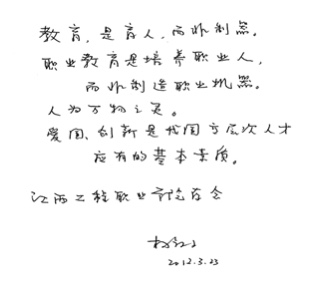 教育，是育人，而非制器。
职业教育是培养职业人，
而非制造职业机器。
人为万物之灵。
爱国、创新是我国高层次人才
应有的基本素质。
江西工程职业学院
2012.3.23